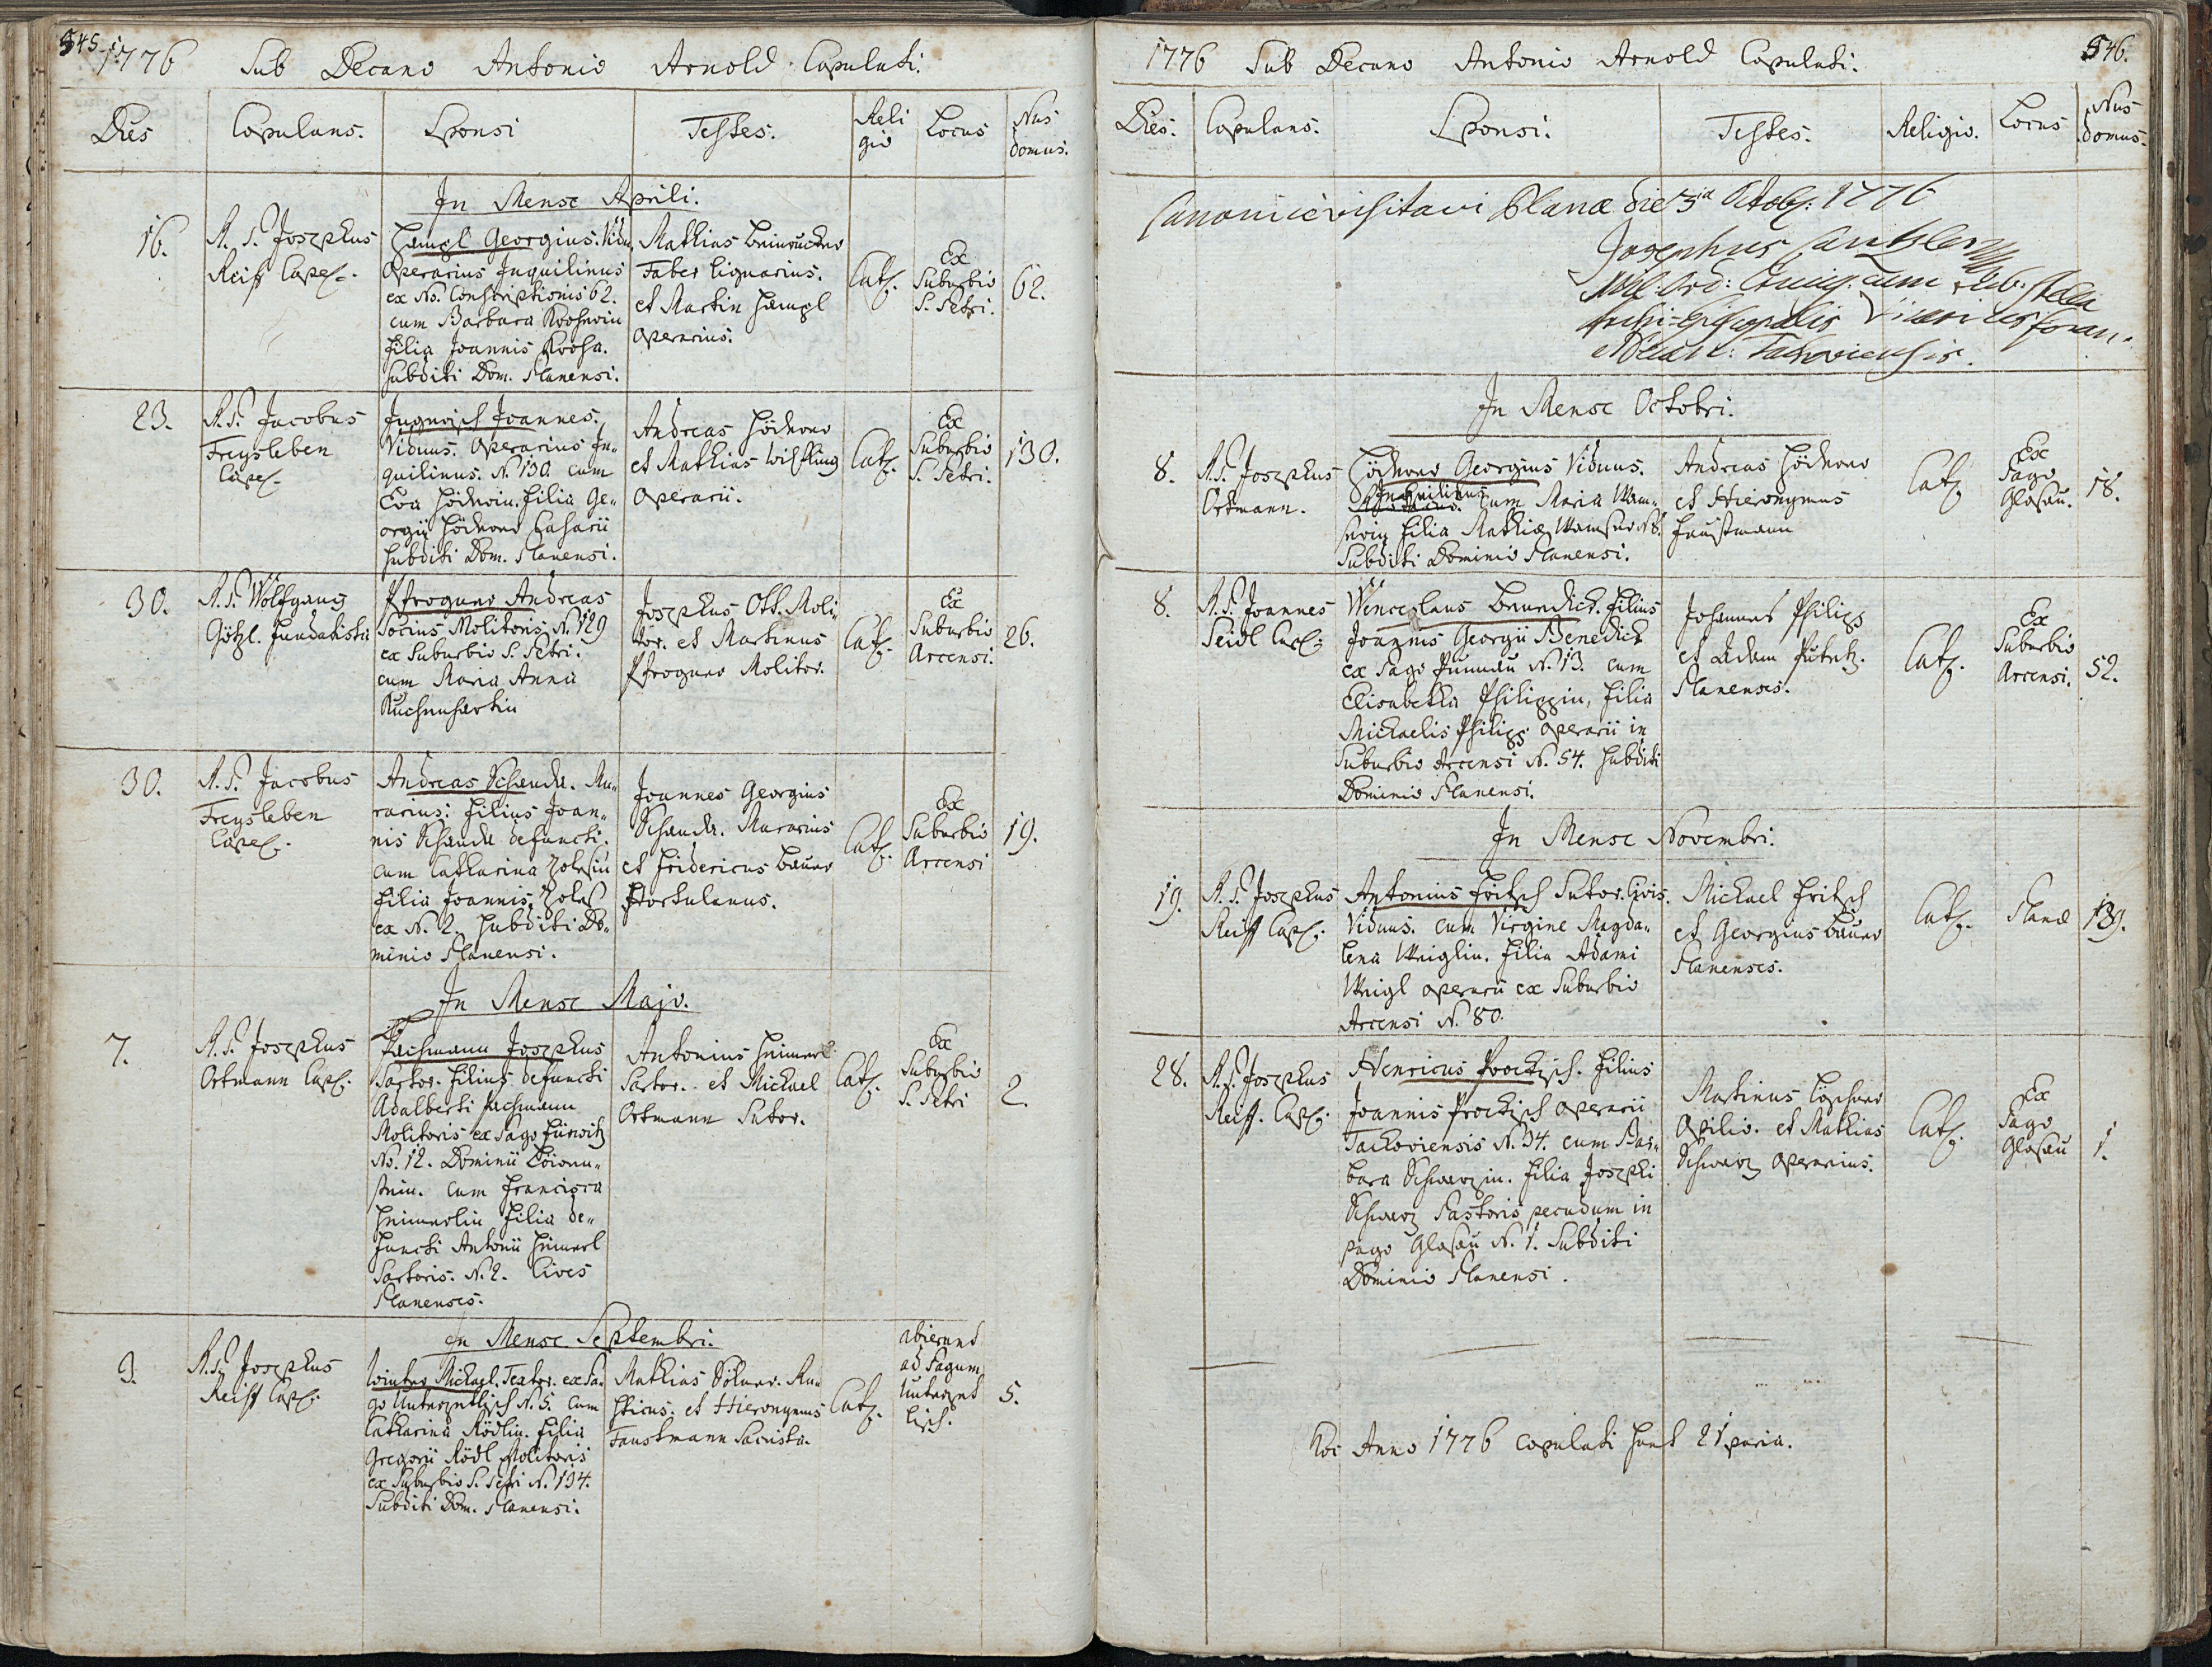 545.
1776 Sub Decano Antonio Arnold Copulati.
Dies Copulans. Sponsi Testes. Reli gio Locus Nus domus.
In Mense Aprili.
16.
R. P. Josephus
Reiss Capel.
Hampl Georgius. Vidu.
Operarius Inquilinus
ex No. Conscriptionis 62.
cum Barbara
filia Joannis
subditi Dom. Planensi.
Mathias
Faber lignarius.
et Martin Hampl
operarius.
Cath.
Ex
Suburbio
S. Petri.
62.
23.
R. P. Jacobus
Freysleben
Capel.
Joannes.
Viduus. Operarius In„
quilinus. N. 130. cum
Eva filia Ge„
orgii
subditi Dom. Planensi.
Andreas
et Mathias
Operarii.
Cath.
Ex
Suburbio
S. Petri.
130.
30.
R. P. Wolfgang
Götzl. Fundatista
Pfrogner Andreas
Socius Molitoris N. 129
ex Suburbio S. Petri.
cum Maria Anna
Josephus Ott. Moli„
tor. et Martinus
Pfrogner Molitor.
Cath.
Ex
Suburbio
Arcensi.
26.
30.
R. P. Jacobus
Freysleben
Capel.
Andreas Schanda. Mu„
rarius: filius Joan„
nis Schanda defuncti.
cum Catharina
filia Joannis
ex N. 2. subditi Do„
minio Planensi.
Joannes Georgius
Schanda. Murarius
et Fridericus Bauer
Hortulanus.
Cath.
Ex
Suburbio
Arcensi
19.
In Mense Majo.
7.
R. P. Josephus
Ortmann Capl.
Pachmann Josephus
Sartor. filius defuncti
Adalberti Pachmann
Molitoris ex Pago
No. 12. Dominii
cum Francisca
Heimerlin filia de„
functi Antonii Heimerl
Sartoris. N. 2. Cives
Planenses.
Antonius Heimerl
Sartor. et Michael
Ortmann Sutor.
Cath.
Ex
Suburbio
S. Petri
2.
In Mense Septembri.
9.
R. P. Josephus
Reiss Capl.
Winter Michael. Textor. ex Pa„
go N. 5. cum
Catharina Rödlin. filia
Gregorii Rödl Molitoris
ex Suburbio S. Petri N. 134.
Subditi Dom. Planensi.
Mathias Ru„
sticus. et Hieronymus
Faustmann Sacrista.
Cath.
abierunt
ad Pagum
5.
1776 Sub Decano Antonio Arnold Copulati.
546.
Dies. Copulans. Sponsi. Testes. Religio. Locus Nus domus.
Canonice visitavi Planæ die 3ia Octob: 1776
Josephus Cantzler
Archi-Episcopalis Vicarius foran.
Decan: Tachoviensis.
In Mense Octobri.
8.
R. P. Josephus
Ortmann.
Georgius Viduus.
Inquilinus
cum Maria
filia Mathiæ N. 8.
Subditi Dominio Planensi.
Andreas
et Hieronymus
Faustmann
Cath.
Ex
Pago
Glasau.
18.
8.
R. P. Joannes
Seidl Capl.
Wenceslaus Benedict. filius
Joannis Georgii Benedict
ex Pago N. 13. cum
Elisabetha Philippin, filia
Michaelis Philipp operarii in
Suburbio Arcensi N. 54. subditi
Dominio Planensi.
Johannes Philipp
et Adam
Planenses.
Cath.
Ex
Suburbio
Arcensi.
52.
In Mense Novembri.
19.
R. P. Josephus
Reiss Capl.
Antonius Fritsch Sutor. Civis.
Viduus. cum Virgine Magda„
lena Weiglin. filia Adami
Weigl operarii ex Suburbio
Arcensi N. 80.
Michael Fritsch
et Georgius Bauer
Planenses.
Cath.
Planæ
139.
28.
R. P. Josephus
Reiss. Capl.
Henricus Procktsch. filius
Joannis Procktsch operarii
Tachoviensis N. 34. cum Bar„
bara Schwarzin. filia Josephi
Schwarz Pastoris pecudum in
pago Glasau N. 1. Subditi
Dominio Planensi.
Martinus
Opilio. et Mathias
Schwarz operarius.
Cath.
Ex
Pago
Glasau
1.
Hoc Anno 1776 copulati sunt 21 paria.